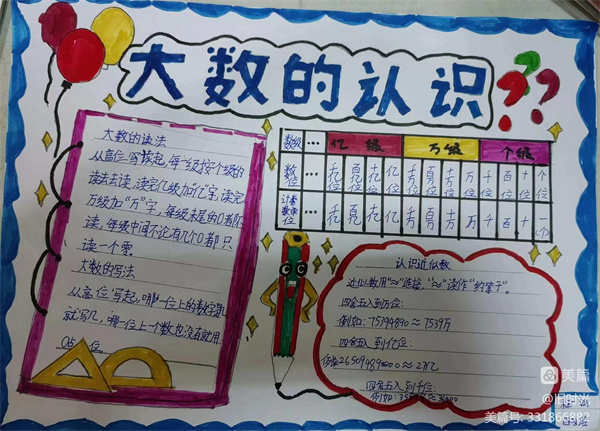 大数的认识??
大数的读法
从高位写读起,每一级按个级的
读法去读,读完亿级加"亿"字,读完
万级加"万"字,每级末尾的0都不
读,每级中间不论有几个0都只
读一个零.
大数的写法
从高位写起,哪一位上的数字是几
就写几,哪一位上一个数也没有就用
0占位.
数级 … 亿级 万级 个级
数位 … 千亿位 百亿位 十亿位 亿位 千万位 百万位 十万位 万位 千位 百位 十位 个位
计数单位 … 千亿 百亿 十亿 亿 千万 百万 十万 万 千 百 十 一(个)
认识近似数
近似数用"≈"连接,"≈"读作"约等于"。
四舍五入到万位:
例如: 75394890≈7539万
四舍五入到亿位:
四舍五入到千位:
例如:
美篇
@旧时光
美篇号: 331866882